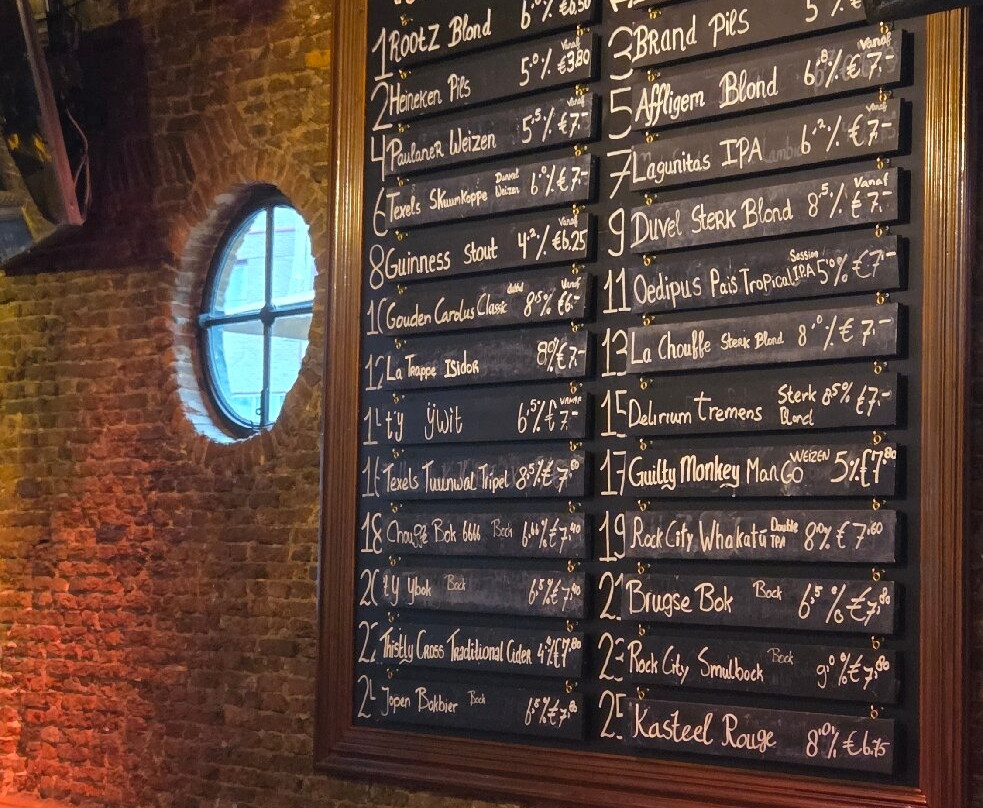 1 Rootz Blond 6.0% €6.50
2 Heineken Pils 5.0% Vanaf €3.80
4 Paulaner Weizen 5.5% Vanaf €7.-
6 Texels Skuumkoppe Dunkel Weizen 6.0% €7.-
8 Guinness Stout 4.2% Vanaf €6.25
10 Gouden Carolus Classic 8.5% Vanaf €6.-
12 La Trappe Isidor 8% €7.-
14 t'y ijwit 6.5% Vanaf €7.-
16 Texels Tuunwal Tripel 8.5% €7.80
18 Chouffe Bok 666 Bock 6.66% €7.40
20 t'y ybok Bock 6.5% €7.40
22 Thistly Cross Traditional Cider 4.4% €7.80
24 Jopen Bokbier Bock 6.5% €7.80
3 Brand Pils 5% €
5 Affligem Blond 6.8% Vanaf €7.-
7 Lagunitas IPA 6.2% Vanaf €7.-
9 Duvel Sterk Blond 8.5% Vanaf €7.-
11 Oedipus Pais Tropical Session IPA 5.0% €7.-
13 La Chouffe Sterk Blond 8.0% €7.-
15 Delirium Tremens Sterk Blond 8.5% €7.-
17 Guilty Monkey Man Go WEIZEN 5% €7.80
19 Rock City Whakatu Double IPA 8.0% €7.60
21 Brugse Bok Bock 6.5% €7.80
23 Rock City Smulbock Bock 9.0% €7.80
25 Kasteel Rouge 8.0% €6.75